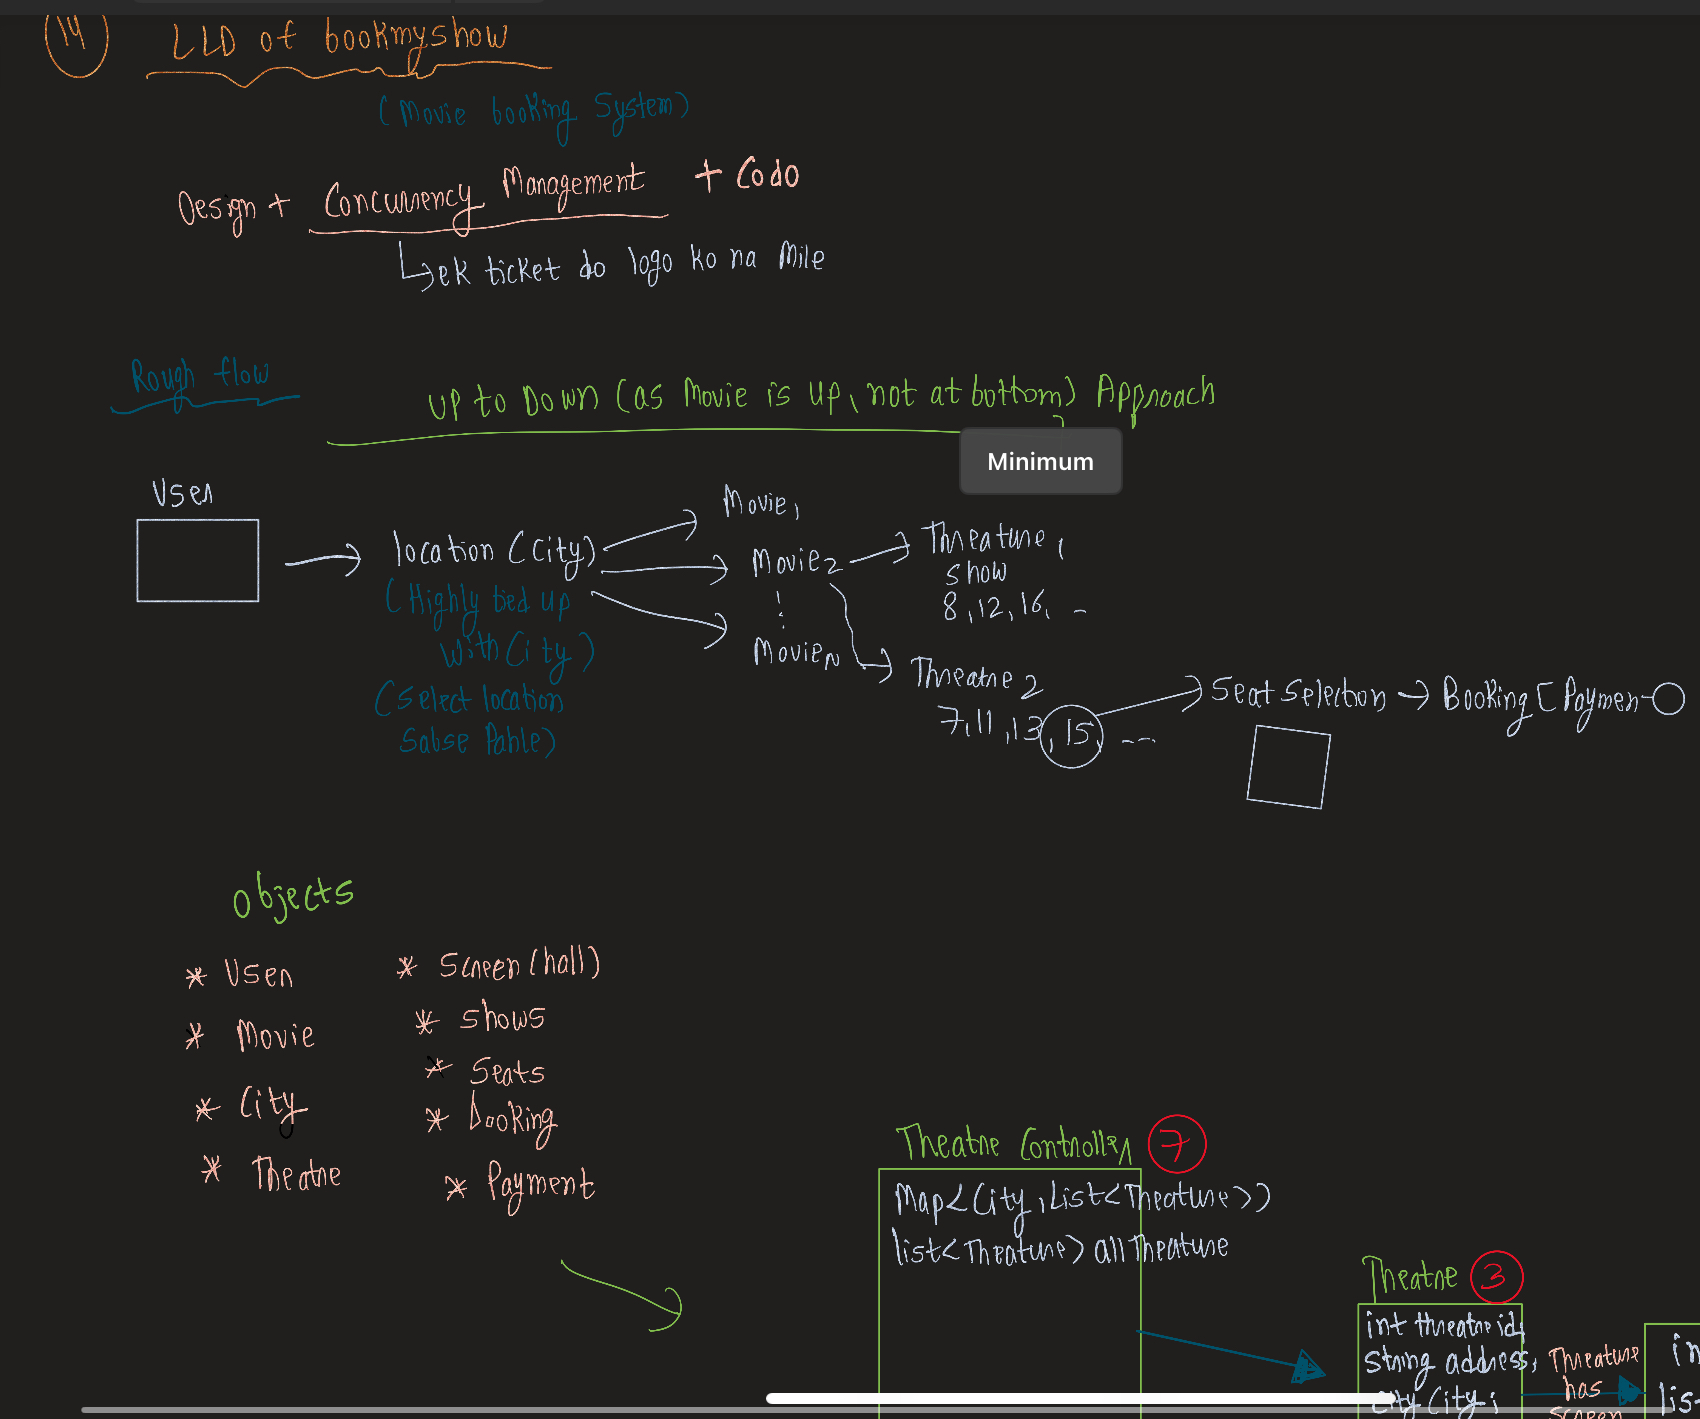 14
LLD of bookmyshow
(Movie booking System)
Design + Concurrency Management + Code
ek ticket do logo ko na mile
Rough flow
UP to Down (as Movie is up, not at bottom) Approach
Minimum
User
location (City)
(Highly tied up
with City)
(Select location
Sabse Pahle)
Movie1
Movie2
MovieN
Threature1
show
8, 12, 16, -
Threatre2
7, 11, 13, 15, --
Seat Selection
Booking [Paymen
Objects
* User
* Movie
* City
* Theatre
* Screen (hall)
* Shows
* Seats
* booking
* Payment
Theatre Controller 7
Map<City, List<Theature>>
list<Theature> all Theature
Theatre 3
int threatre id;
String address;
City City;
Threature
has
screen
in
lis